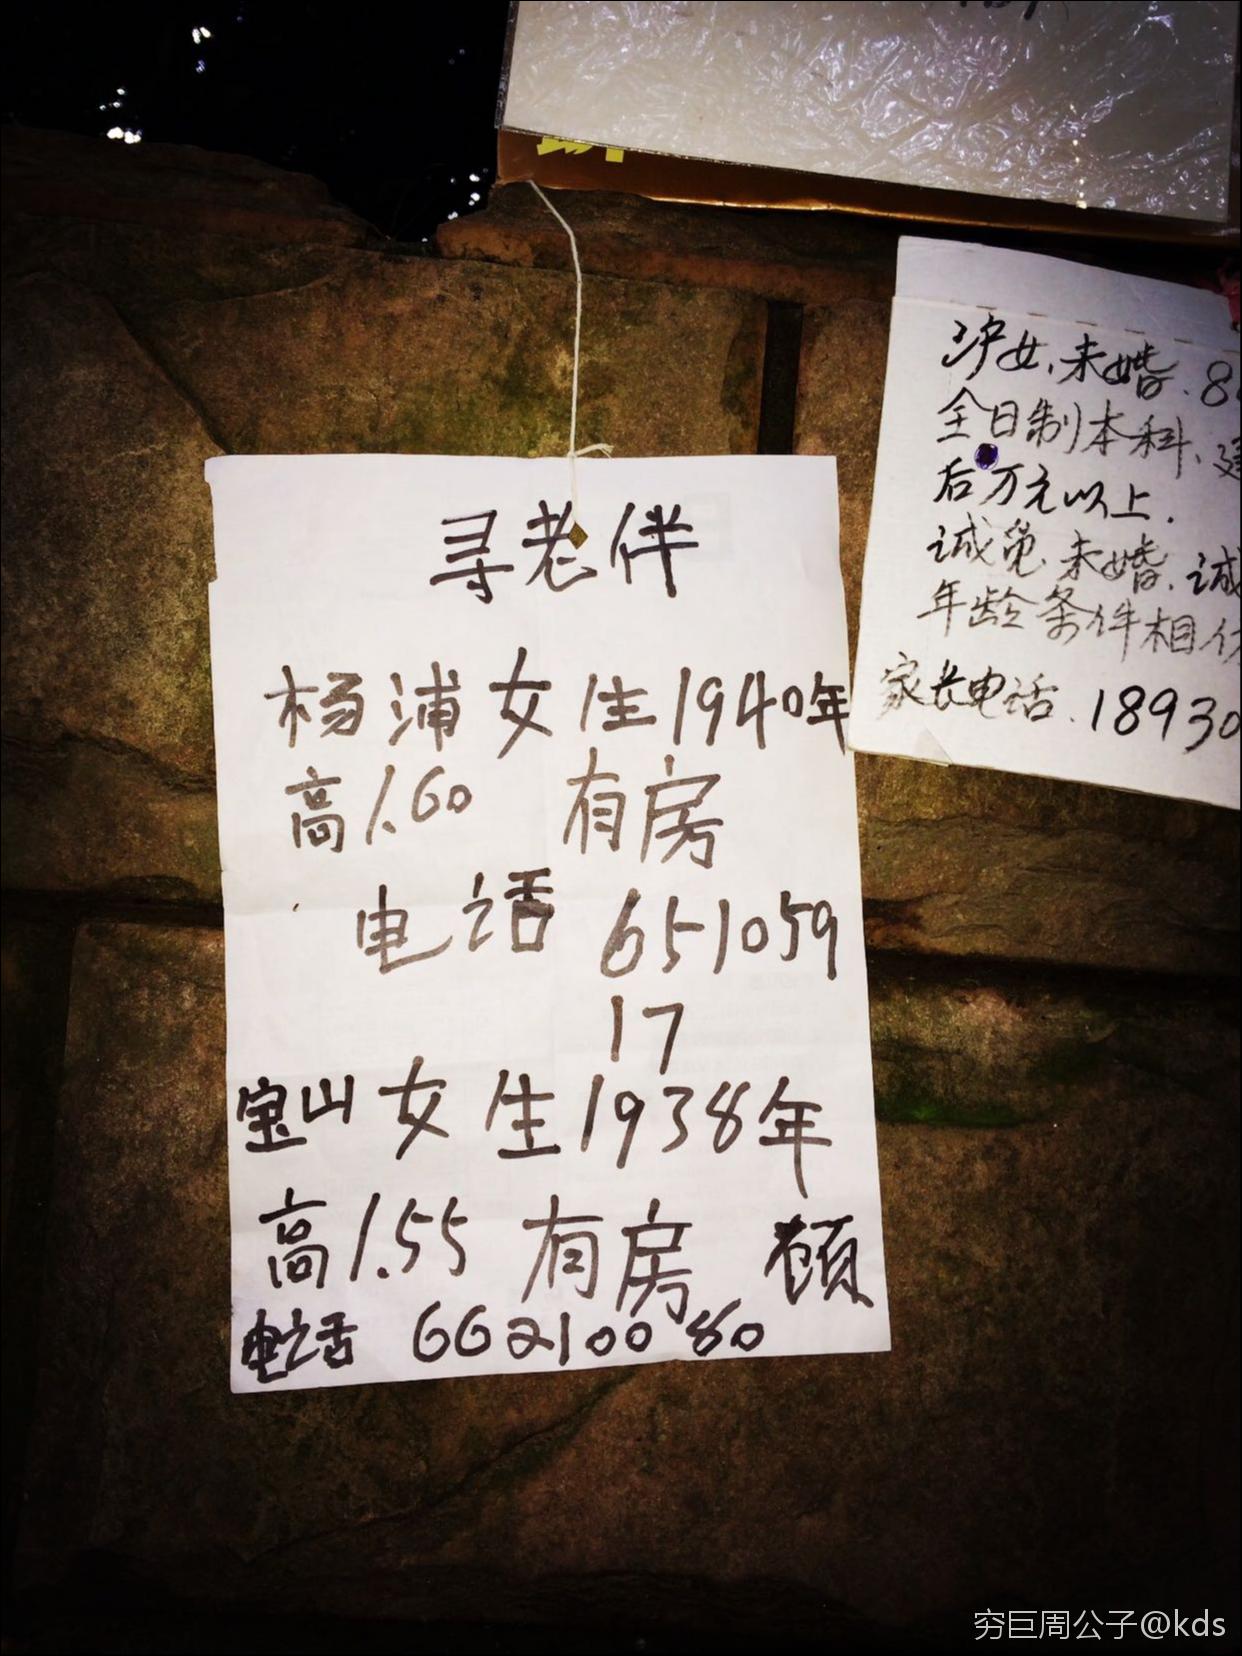 寻老伴
杨浦女生1940年
高1.60 有房
电话 651059
17
宝山女生1938年
高1.55 有房 顾
电话 66210080
沪女.未婚.8
全日制本科.建
后万元以上.
诚觅.未婚.诚
年龄条件相仿
家长电话.18930
穷巨周公子@kds